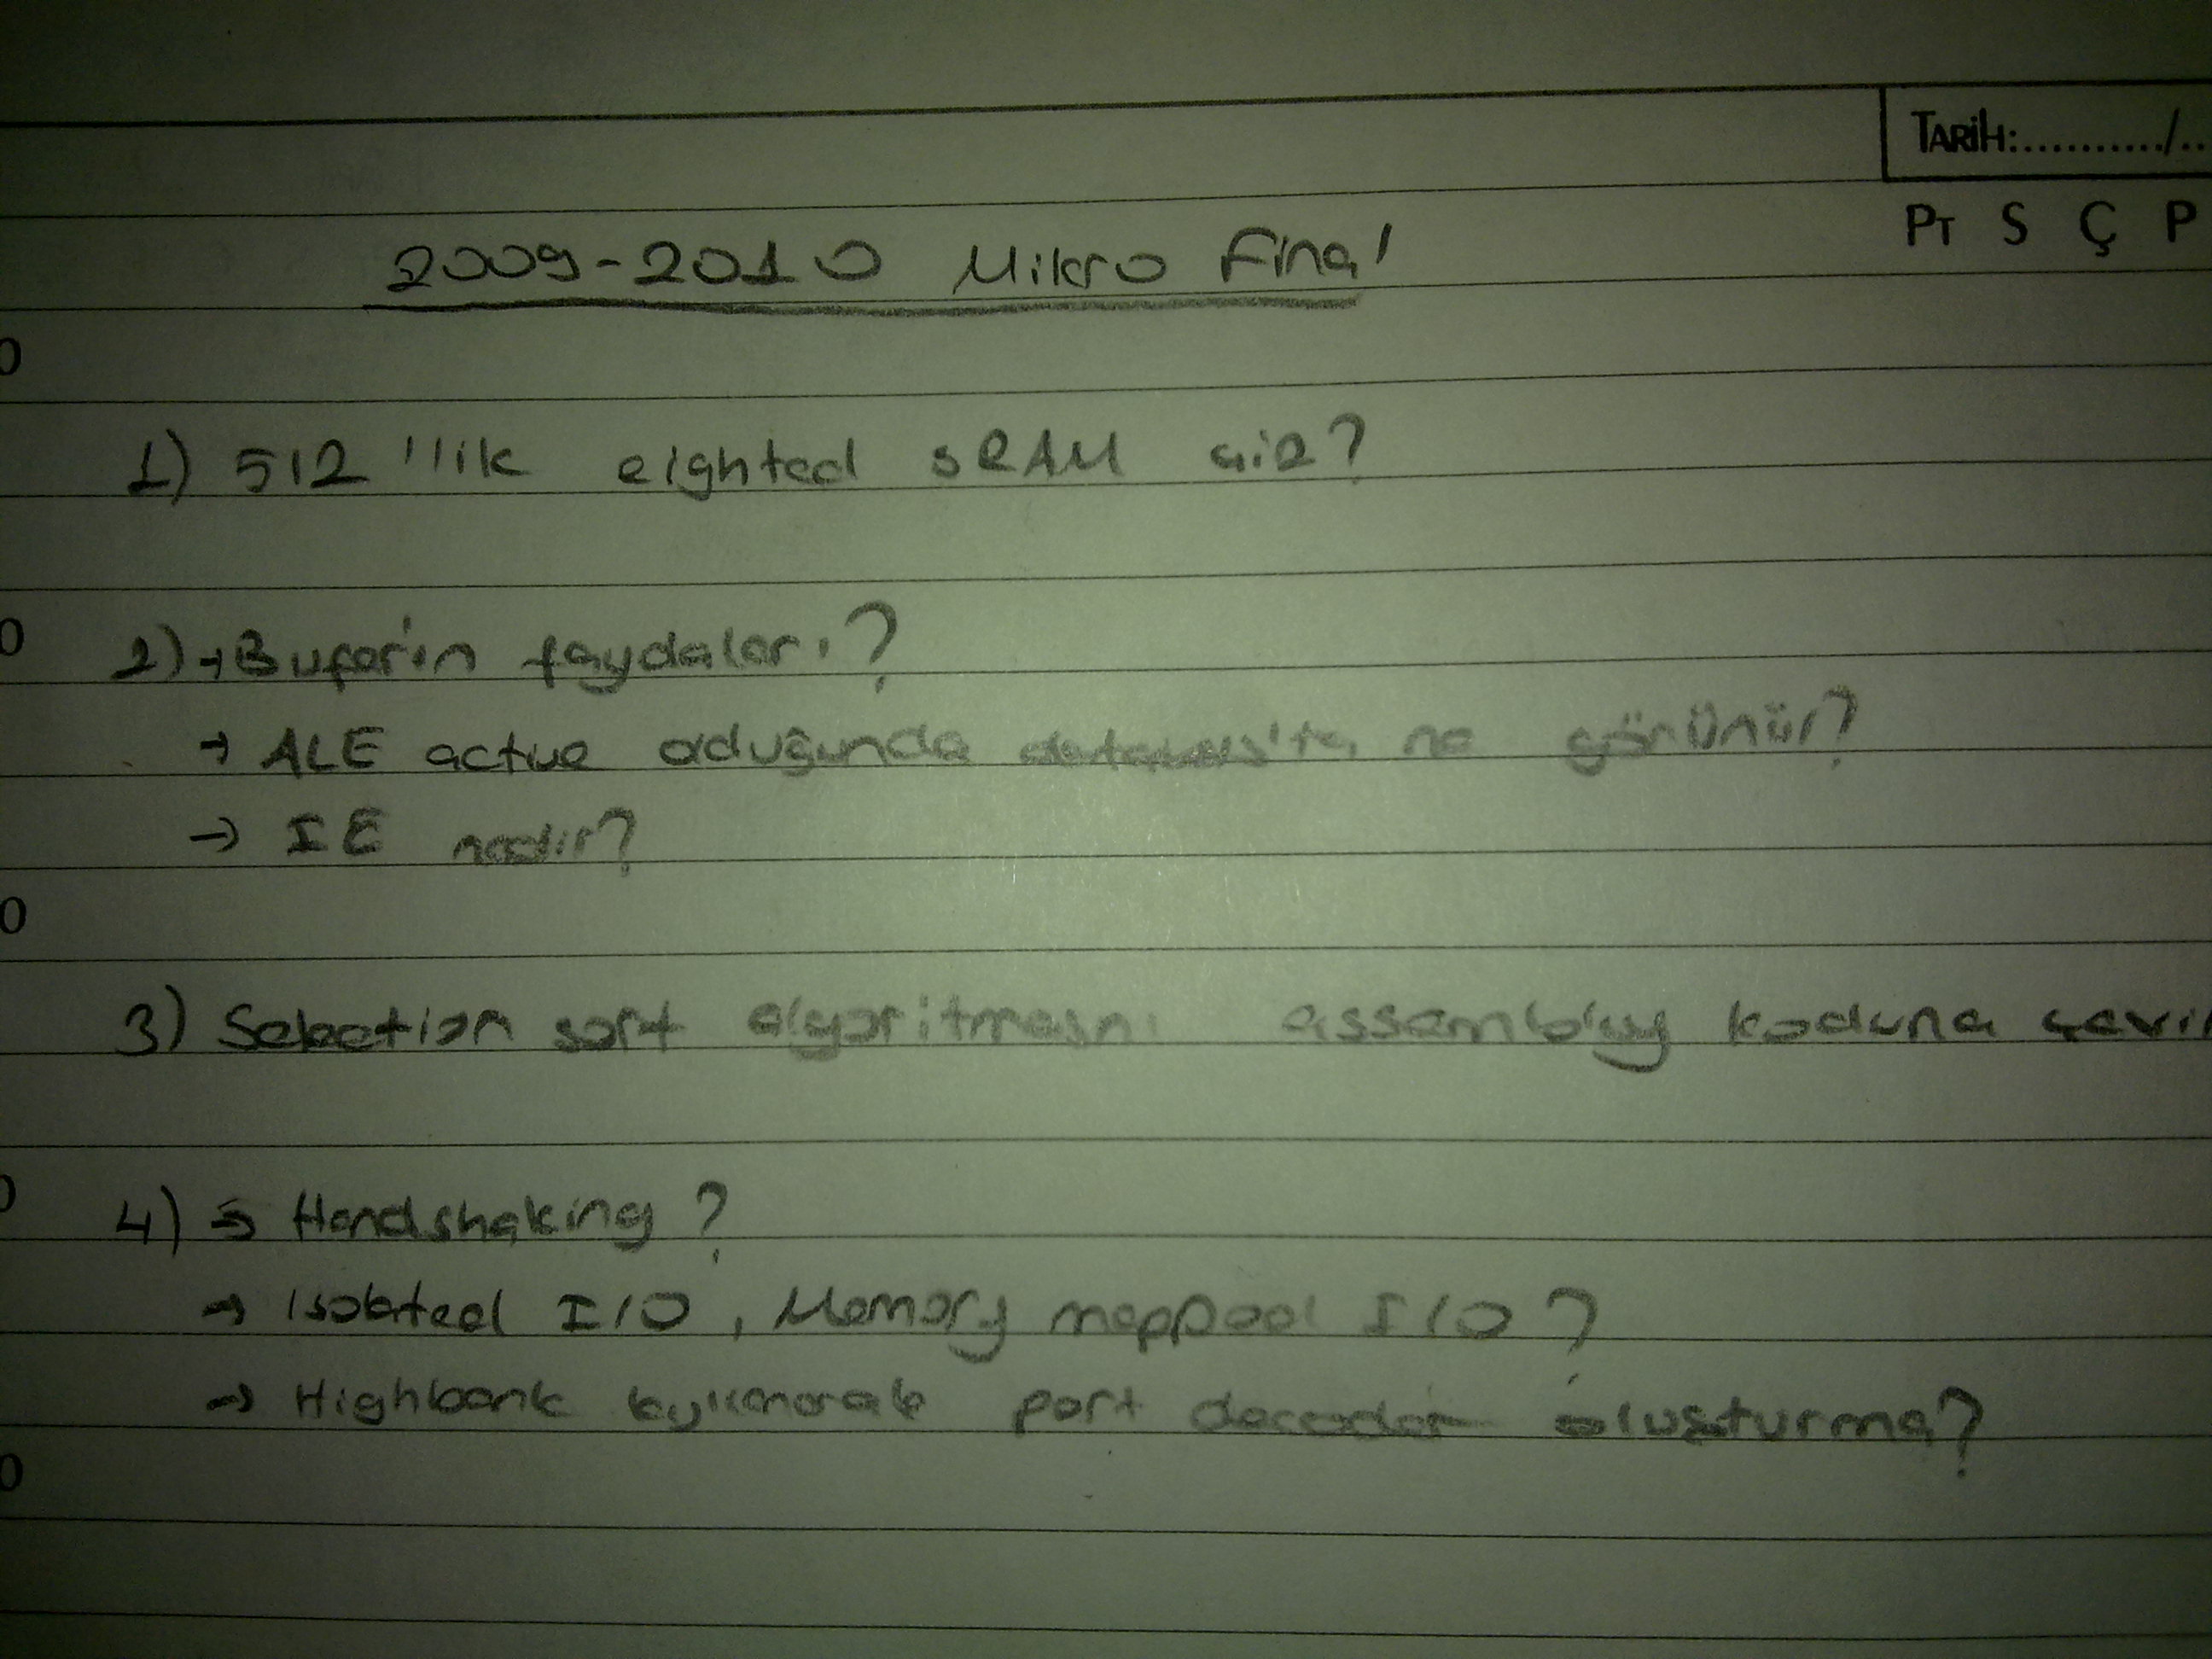 TARİH:.........../..
PT S Ç P
2009-2010 Mikro Final
1) 512 'lik eighted sRAM çiz?
2) → Bufer'ın faydaları?
→ ALE active olduğunda databus'ta ne görünür?
→ IE nedir?
3) Selection sort algoritmasnı assembly koduna çevir
4) → Handshaking?
→ Isolated I/O, Memory mapped I/O?
→ Highbank kullanarak port decoder oluşturma?